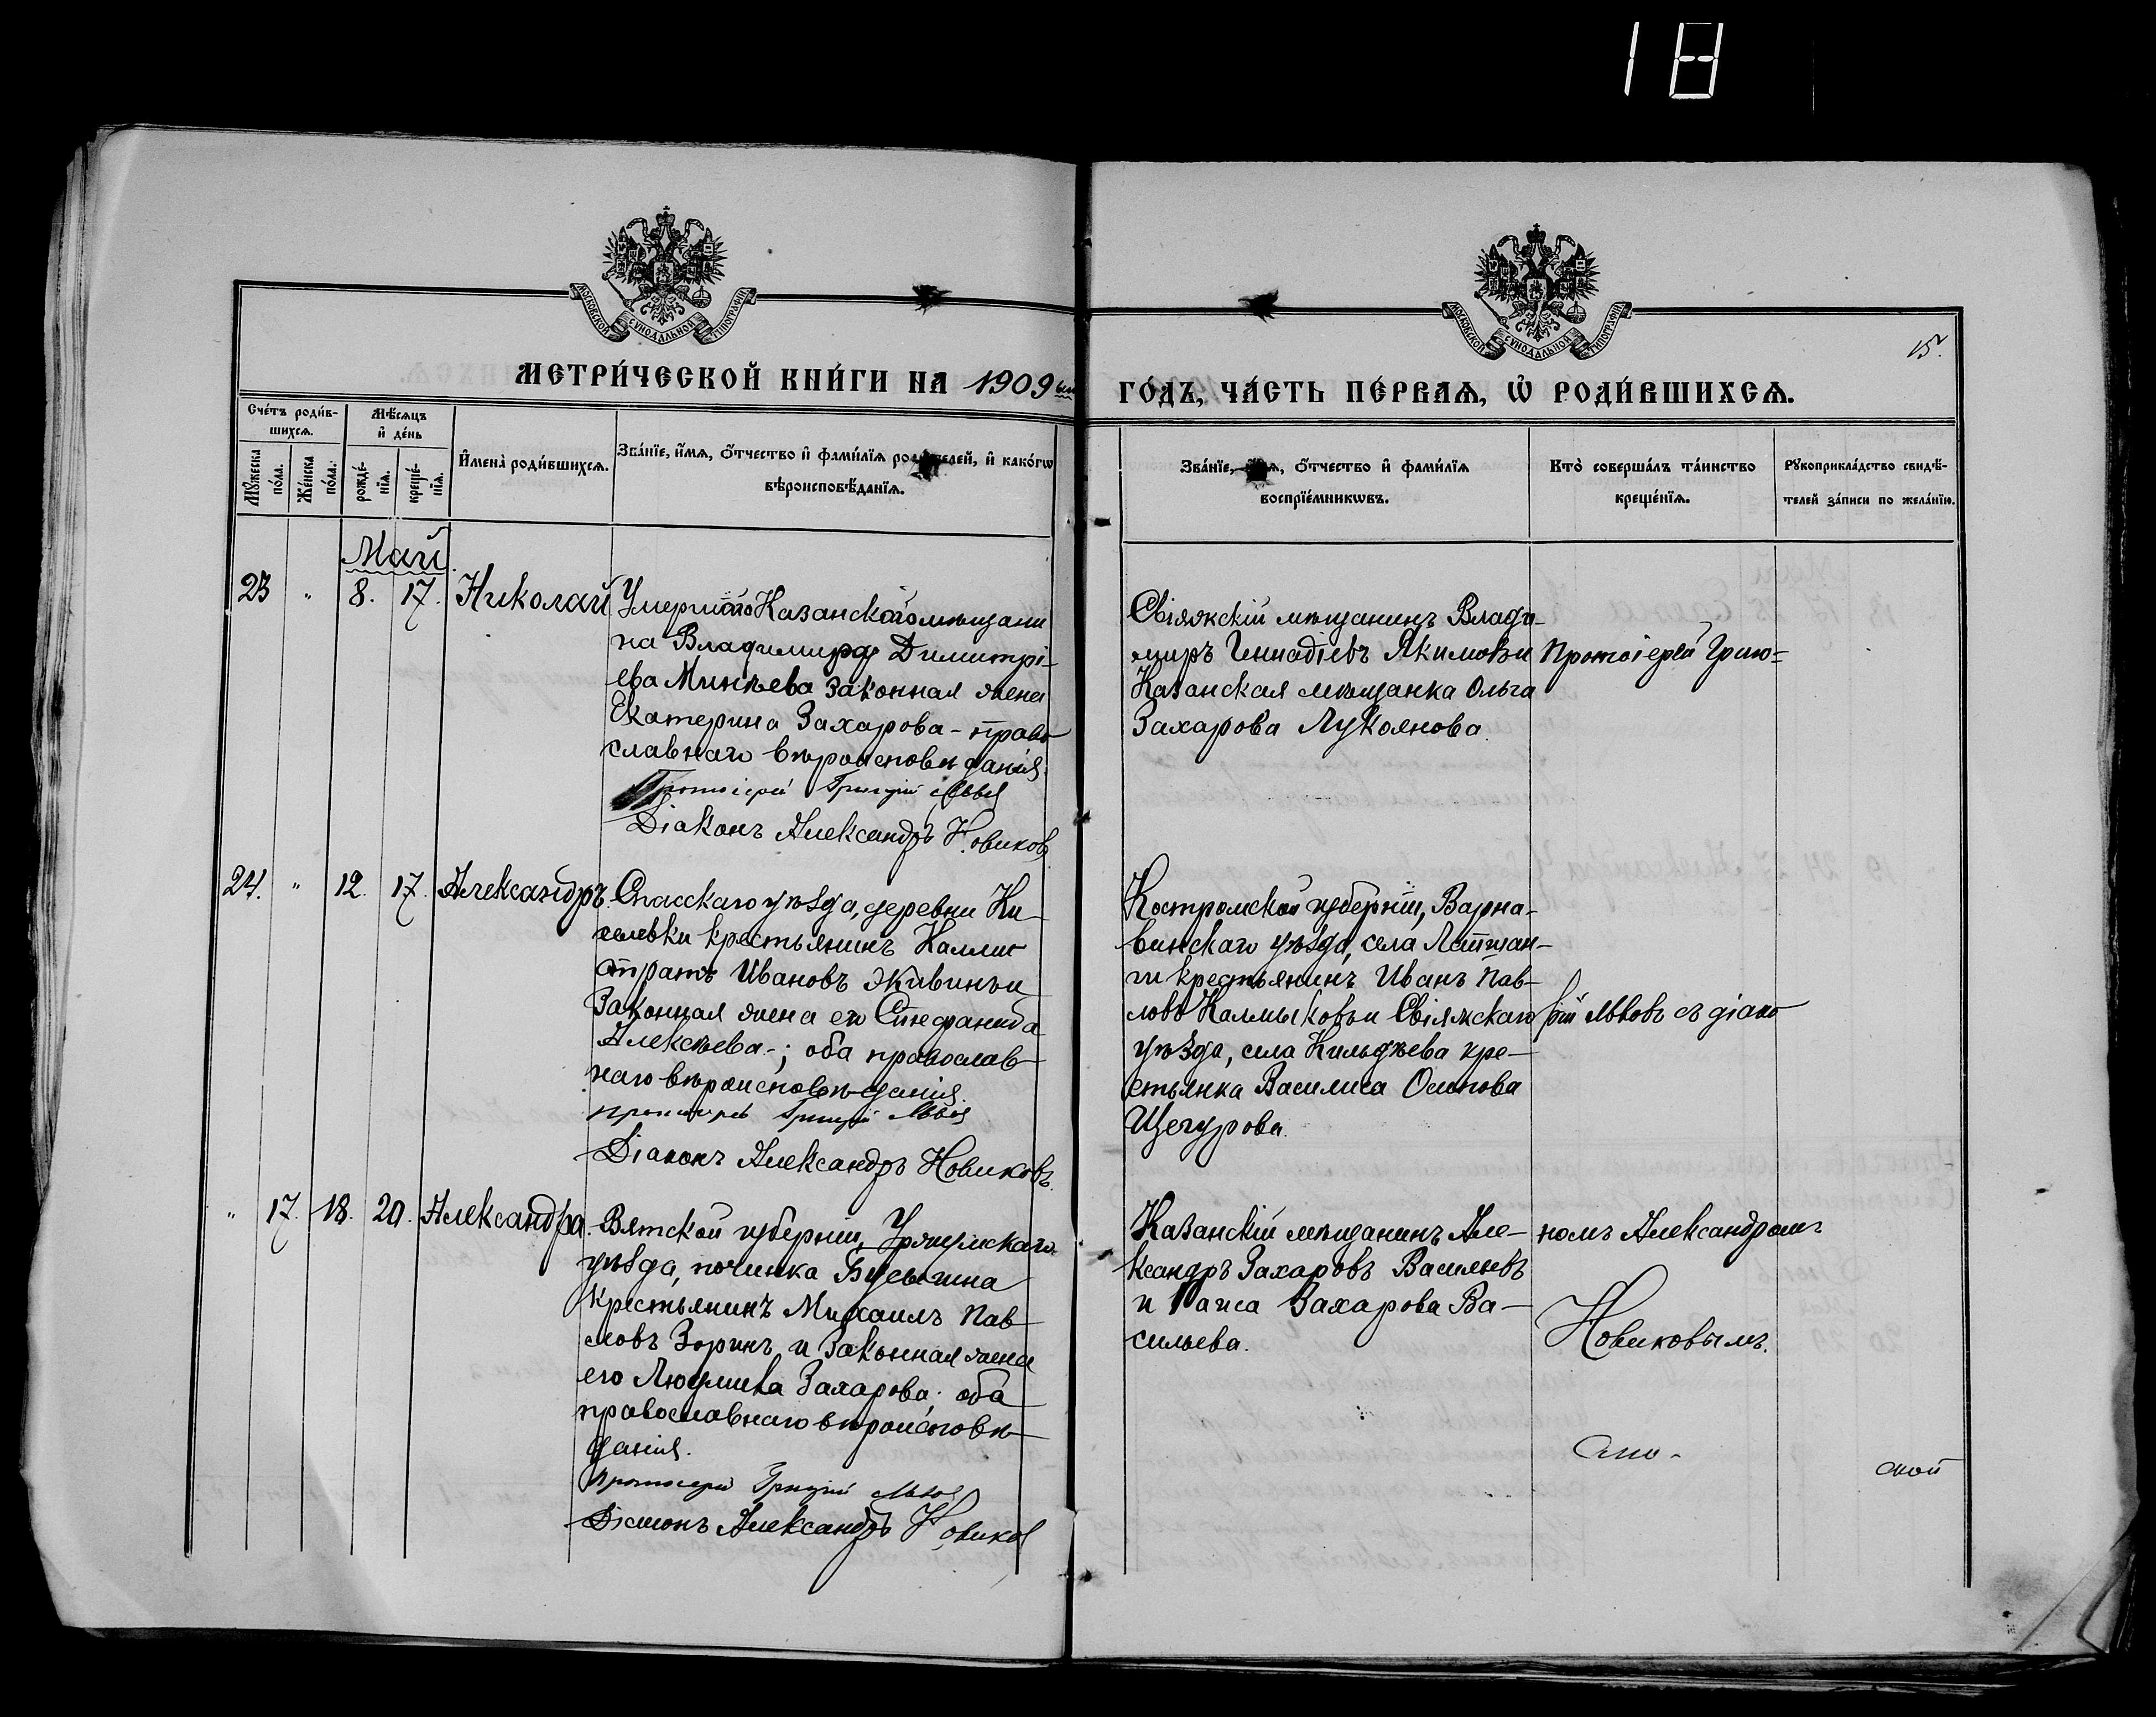 18
МОСКОВСКОЙ СУНОДАЛЬНОЙ ТИПОГРАФІИ
МОСКОВСКОЙ СУНОДАЛЬНОЙ ТИПОГРАФІИ
15.
МЕТРИ́ЧЕСКОЙ КНИ́ГИ НА 1909 ый
ГО́ДЪ, ЧА́СТЬ ПЕ́РВАѦ, Ѡ҆ РОДИ́ВШИХСѦ.
Сче́тъ роди́в-
шихсѧ.
Мѣ́сѧцъ
и҆ де́нь
Мꙋ́жеска по́ла.
Же́нска по́ла.
рожде́-
нїѧ.
креще́-
нїѧ.
И҆мена̀ роди́вшихсѧ.
Зва́нїе, и҆́мѧ, ѻ҆́тчество и҆ фами́лїѧ родителей, и҆ како́гѡ
вѣроисповѣ́данїѧ.
Зва́нїе, и҆́мѧ, ѻ҆́тчество и҆ фами́лїѧ
воспрїе́мникѡвъ.
Кто̀ соверша́лъ та́инство
креще́нїѧ.
Рꙋкоприкла́дство свидѣ́-
телей за́писи по жела́нїю.
Май
23 " 8. 17. Николай
Умершаго Казанскаго мѣщани
на Владимира Димитрі-
ева Минѣева законная жена
Екатерина Захарова - право
славнаго вѣроисповѣданія.
Протоіерей Григорій Львов
Діаконъ Александръ Новиковъ
Свіяжскій мѣщанинъ Влади-
миръ Геннадіевъ Якимовъ и
Казанская мѣщанка Ольга
Захарова Лукоянова
Протоіерей Григо=
24. " 12. 17. Александръ.
Спасскаго уѣзда, деревни Ки-
селевки крестьянинъ Каллис
тратъ Ивановъ Живинъ и
законная жена его Стефанида
Алексѣева-; оба православ-
наго вѣроисповѣданія.
Протоіерей Григорій Львов
Діаконъ Александръ Новиковъ.
Костромской губерніи, Варна-
винскаго уѣзда, села Лапшан-
ги крестьянинъ Иванъ Пав-
ловъ Калмыковъ и Свіяжскаго
уѣзда, села Кильдѣева кре-
стьянка Василиса Осипова
Щегурова.
рій Львовъ съ діако
" 17. 18. 20. Александра.
Вятской губерніи, Уржумскаго
уѣзда, починка
крестьянинъ Михаилъ Пав-
ловъ Зоринъ и законная жена
его Людмила Захарова: оба
православнаго вѣроисповѣ-
данія.
Протоіерей Григорій Львов
Діаконъ Александръ Новиков
Казанскій мѣщанинъ Але-
ксандръ Захаровъ Васильевъ
и Раиса Захарова Ва-
сильева.
номъ Александромъ
Новиковымъ.
ской